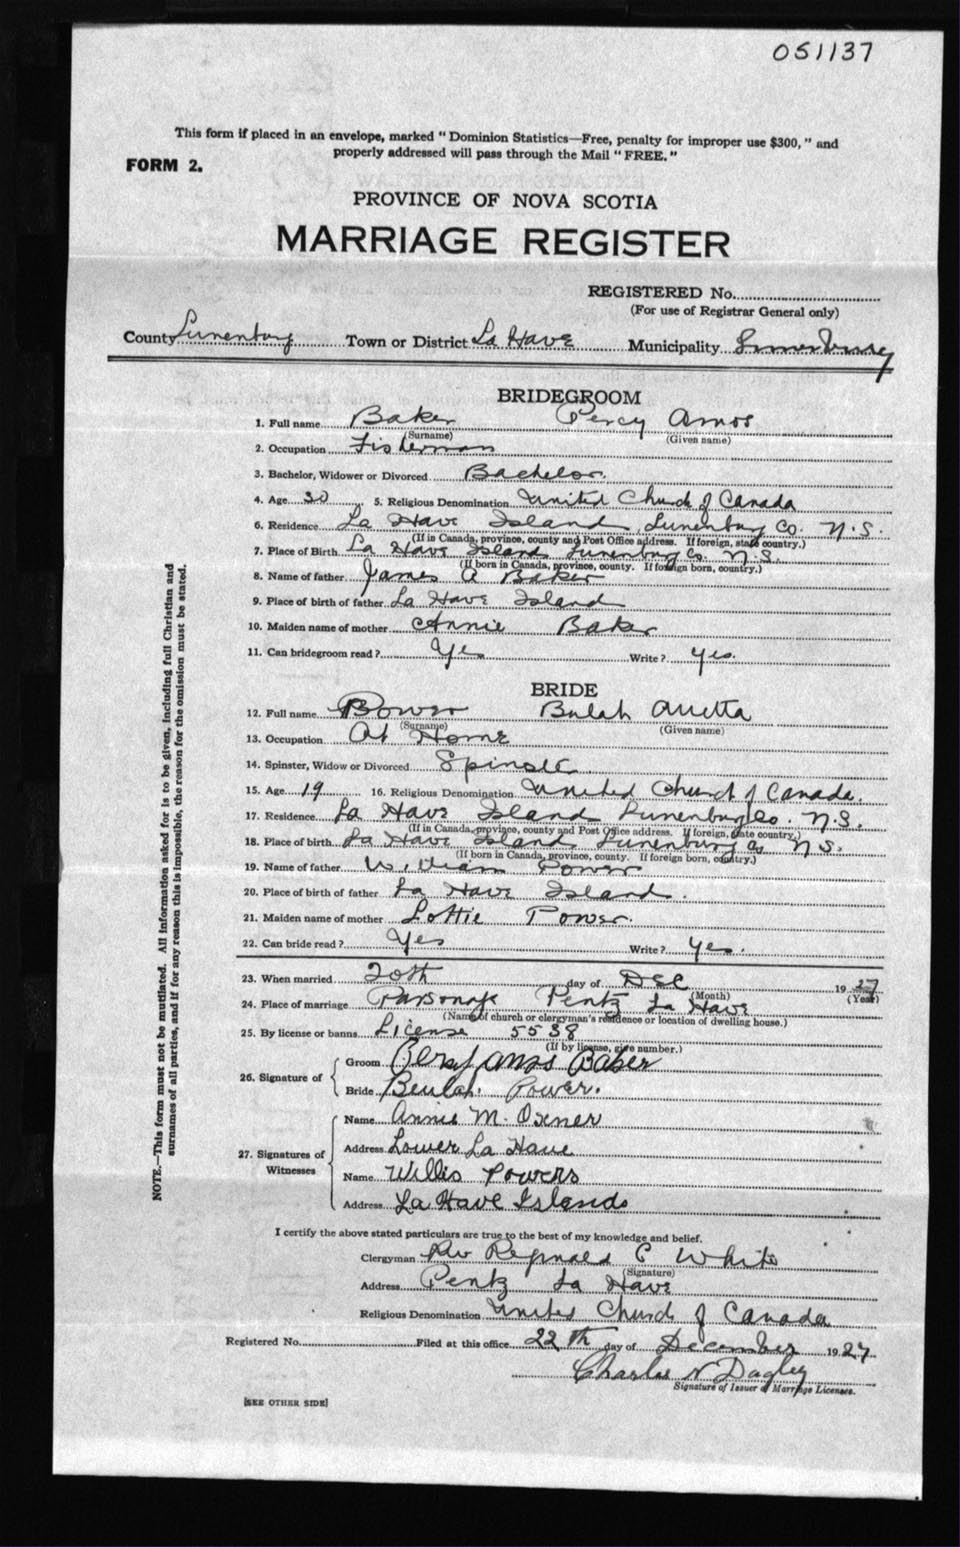 051137
This form if placed in an envelope, marked "Dominion Statistics—Free, penalty for improper use $300," and
properly addressed will pass through the Mail "FREE."
FORM 2.
PROVINCE OF NOVA SCOTIA
MARRIAGE REGISTER
REGISTERED No.
(For use of Registrar General only)
County Lunenburg Town or District La Have Municipality Lunenburg
BRIDEGROOM
1. Full name Baker Percy Amos
(Surname) (Given name)
2. Occupation Fisherman
3. Bachelor, Widower or Divorced Bachelor.
4. Age 30 5. Religious Denomination United Church of Canada
6. Residence La Have Island, Lunenburg Co. N.S.
(If in Canada, province, county and Post Office address. If foreign, state country.)
7. Place of Birth La Have Island Lunenburg Co. N.S.
(If born in Canada, province, county. If foreign born, country.)
8. Name of father James A Baker
9. Place of birth of father La Have Island
10. Maiden name of mother Annie Baker
11. Can bridegroom read? Yes Write? yes.
BRIDE
12. Full name Power Bulah Auetta
(Surname) (Given name)
13. Occupation At Home
14. Spinster, Widow or Divorced Spinster
15. Age 19 16. Religious Denomination United Church of Canada.
17. Residence La Have Island Lunenburg Co. N.S.
(If in Canada, province, county and Post Office address. If foreign, state country.)
18. Place of birth La Have Island Lunenburg Co N.S.
(If born in Canada, province, county. If foreign born, country.)
19. Name of father William Power
20. Place of birth of father La Have Island.
21. Maiden name of mother Lottie Power.
22. Can bride read? Yes Write? yes.
23. When married 20th day of Dec 1927
(Month) (Year)
24. Place of marriage Parsonage Pentz La Have
(Name of church or clergyman's residence or location of dwelling house.)
25. By license or banns License 5538
(If by license, give number.)
26. Signature of
Groom Percy Amos Baker
Bride Beulah Power.
27. Signatures of Witnesses
Name Annie M. Oxner
Address Lower La Have
Name Willis Powers
Address La Have Islands
I certify the above stated particulars are true to the best of my knowledge and belief.
Clergyman Rev Reginald C White
(Signature)
Address Pentz La Have
Religious Denomination United Church of Canada
Registered No. Filed at this office 22th day of December 1927
Charles N Dagley
Signature of Issuer of Marriage Licenses.
[SEE OTHER SIDE]
NOTE.—This form must not be mutilated. All information asked for is to be given, including full Christian and
surnames of all parties, and if for any reason this is impossible, the reason for the omission must be stated.